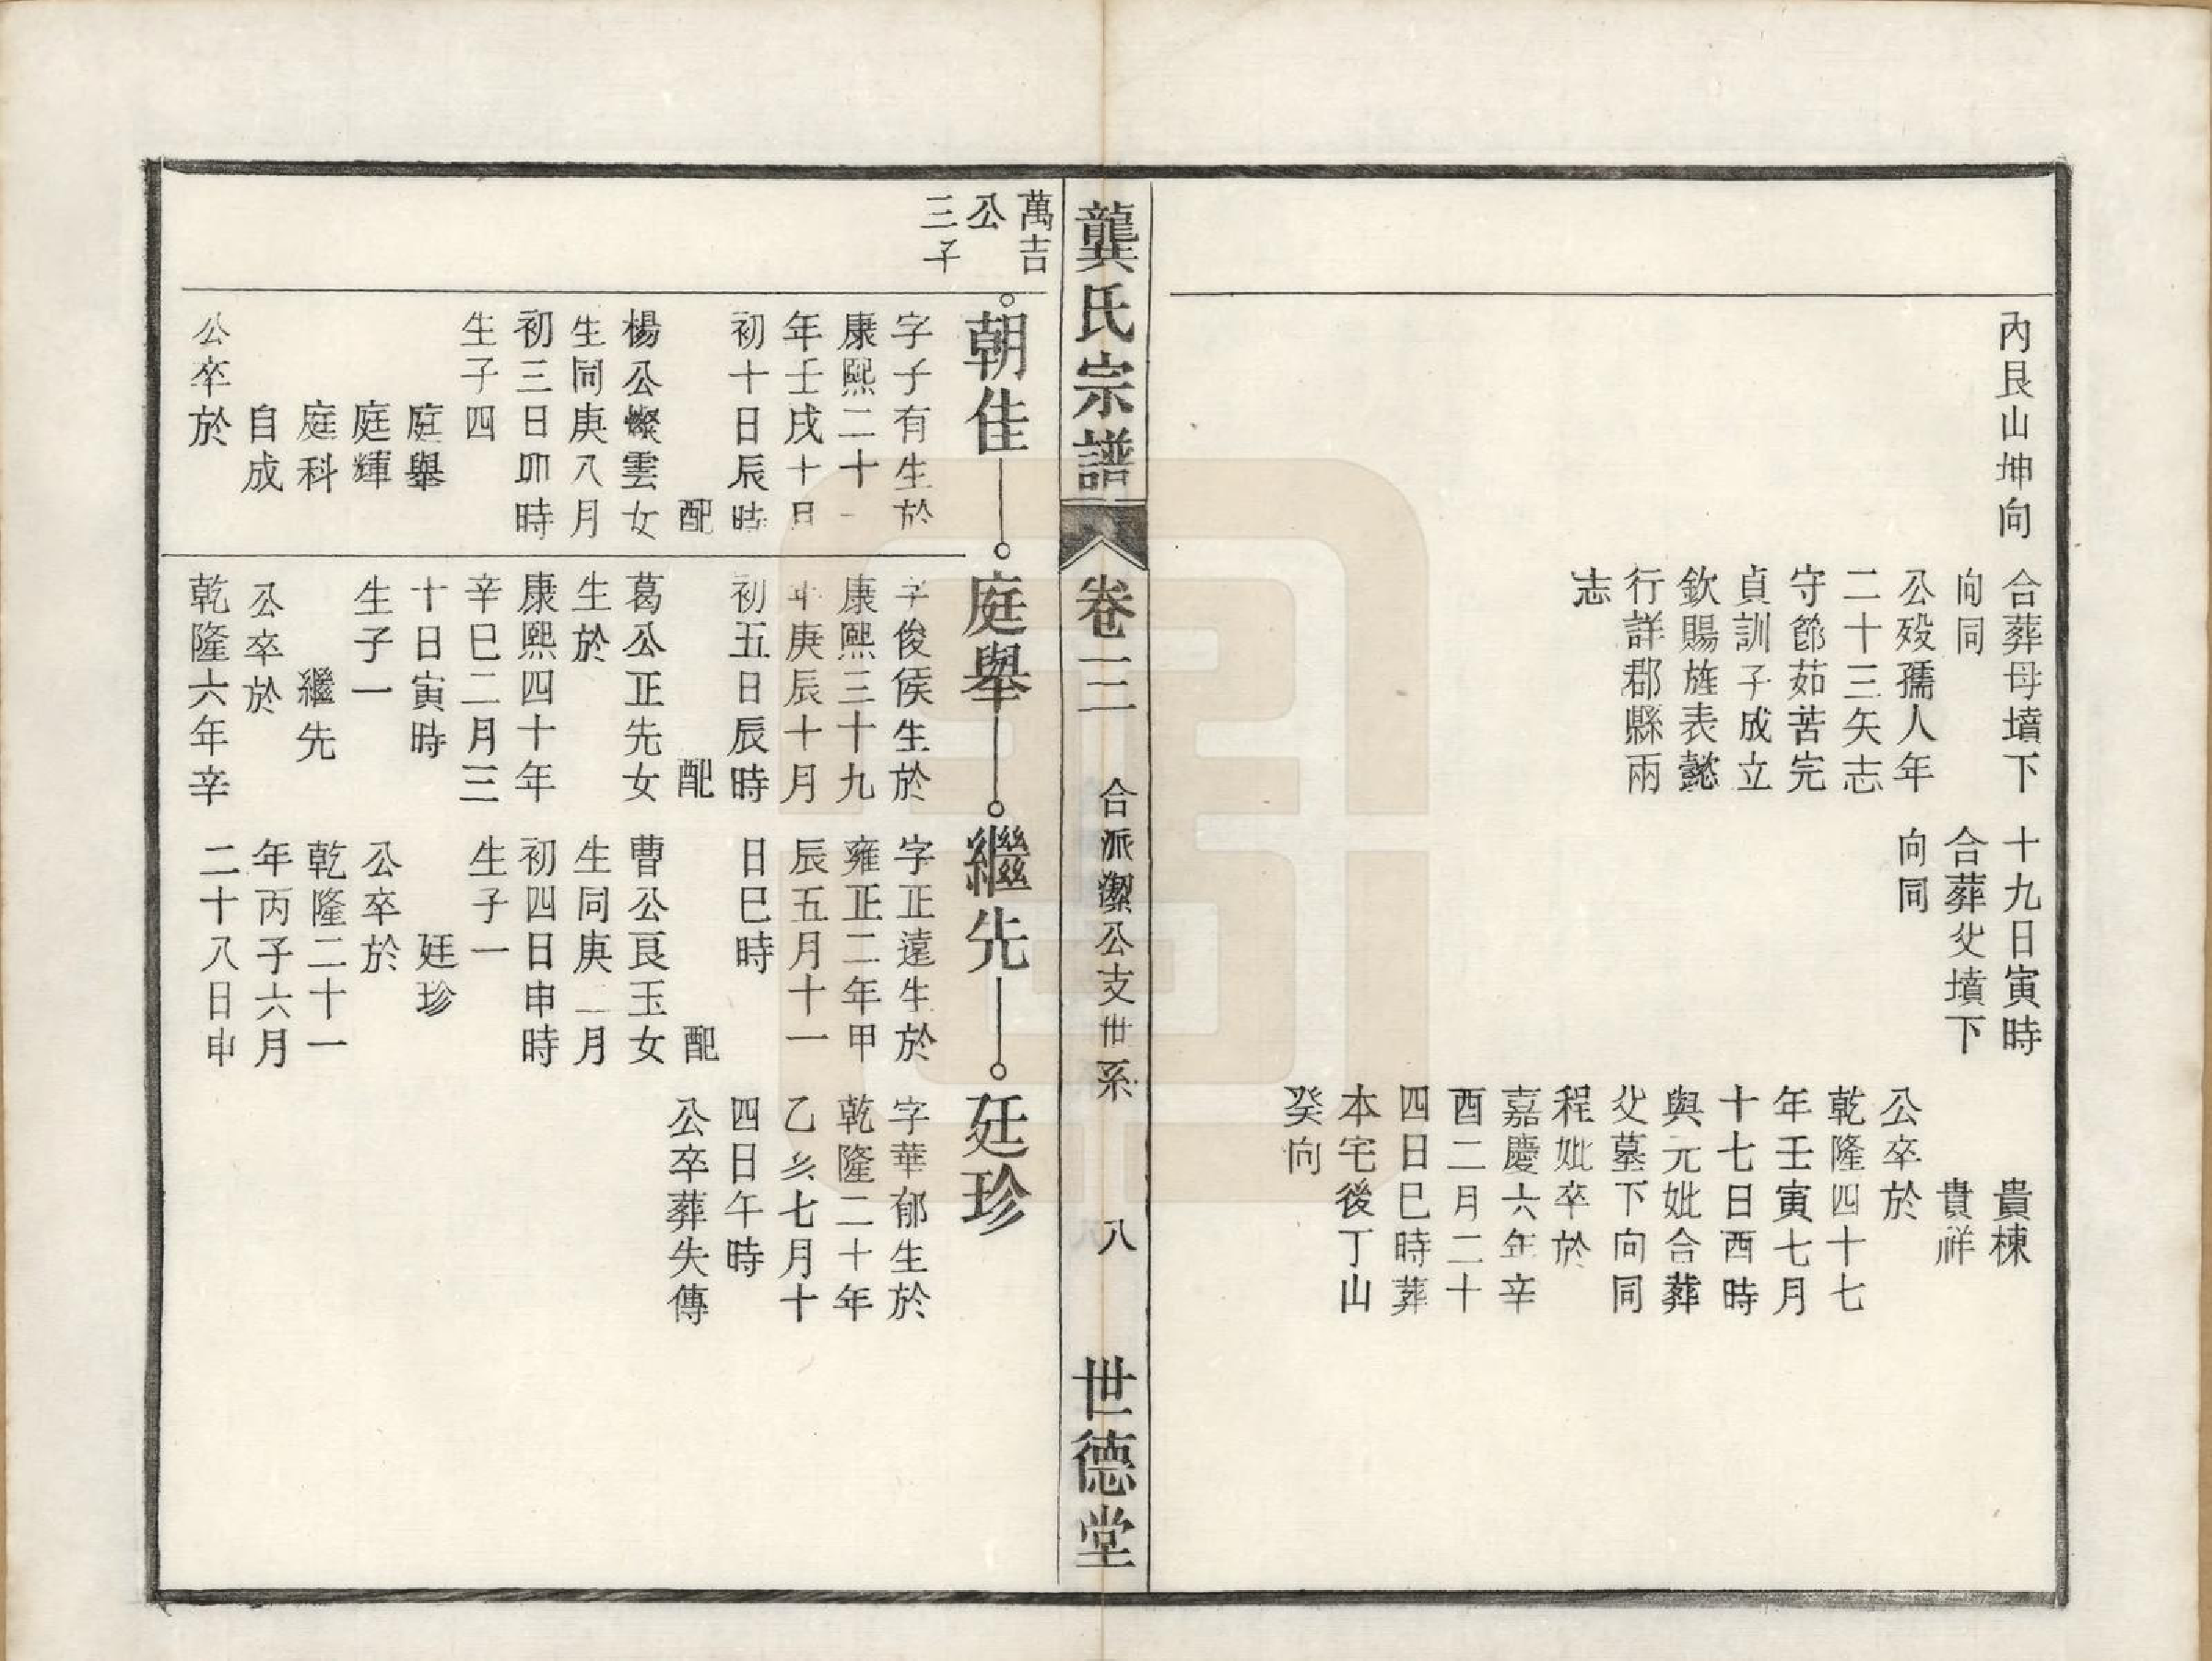 內艮山坤向
合葬母墳下
向同
公歿孺人年
二十三矢志
守節茹苦完
貞訓子成立
欽賜旌表懿
行詳郡縣兩
志
十九日寅時
合葬父墳下
向同
貴棟
貴祥
公卒於
乾隆四十七
年壬寅七月
十七日酉時
與元妣合葬
父墓下向同
程妣卒於
嘉慶六年辛
酉二月二十
四日巳時葬
本宅後丁山
癸向
龔氏宗譜
卷三
合派潔公支世系
八
世德堂
萬吉
公
三子
朝佳
字子有生於
康熙二十一
年壬戌十月
初十日辰時
配
楊公燦雲女
生同庚八月
初三日卯時
生子四
庭舉
庭輝
庭科
自成
公卒於
庭舉
字俊侯生於
康熙三十九
年庚辰十月
初五日辰時
配
葛公正先女
生於
康熙四十年
辛巳二月三
十日寅時
生子一
繼先
公卒於
乾隆六年辛
繼先
字正遠生於
雍正二年甲
辰五月十一
日巳時
配
曹公良玉女
生同庚二月
初四日申時
生子一
廷珍
公卒於
乾隆二十一
年丙子六月
二十八日申
廷珍
字華郁生於
乾隆二十年
乙亥七月十
四日午時
公卒葬失傳